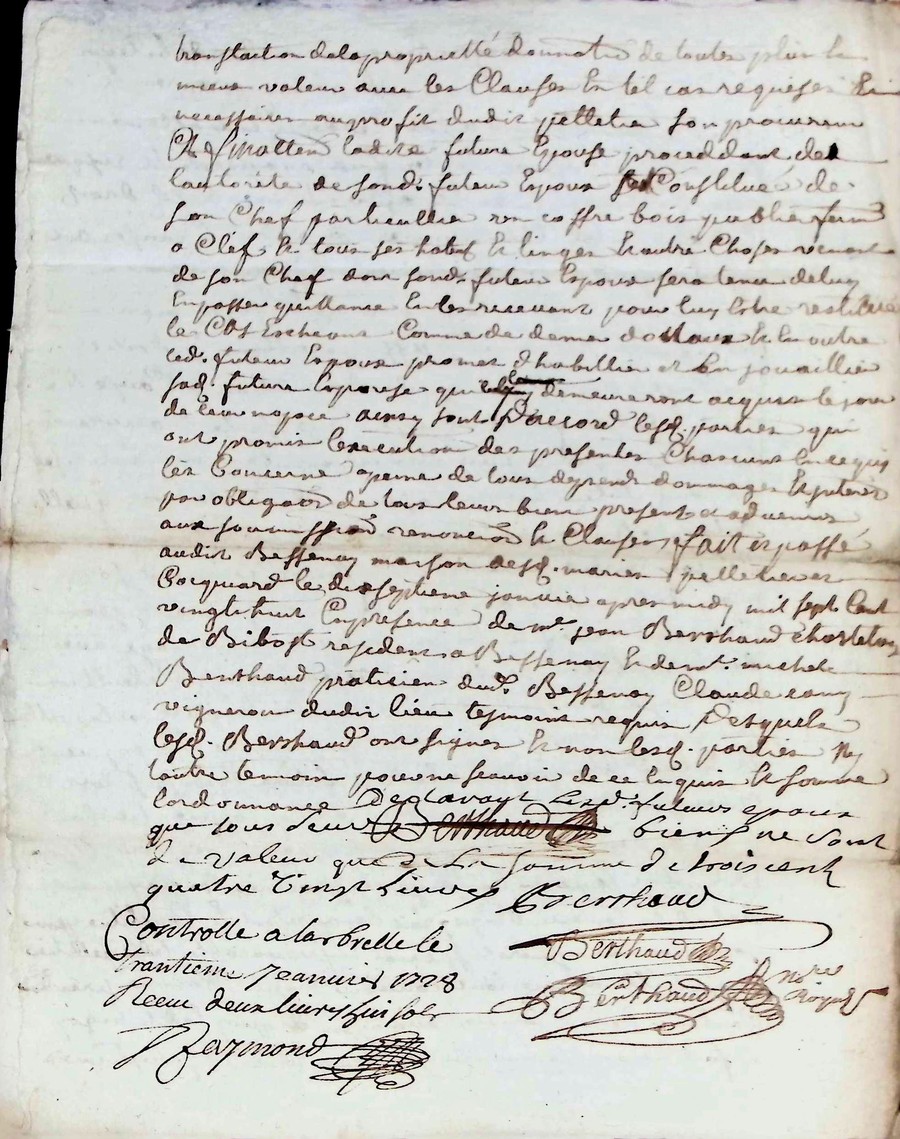 translaction de la proprietté donnation de toutes plus la
mieux valeur avec les Clauses En tel cas requises Et
necessaires au profit dudit pelletie son procureur
Et ladite future Epouse proceddant de
lautorité de sond. futeur Epoux Constitué de
son Chef particullie un coffre bois fermt
a Cléf Et tous ses habts Et linges Et autre Choses venant
de son Chef dont sond. futeur Espoux sera tenu de luy
En passer quittance En les recevant pour luy Estre restitué
le Cas Escheant Comme de deme dottaux Et En outre
led. futeur Espoux promet dhabillier et Enjouaillier
sad. future Espouse qui luy demeureront acquis le jour
de leur nopce ainsy sont Daccord lesd. parties qui
ont promis lexecution des presentes Chascuns En ce qui
les Concerne a peine de tous depends dommages Et interes
par obligaon de tous leurs bien present et advenir
aux soumission renoncion Et Clauses, fait et passé
audit Bessenay maison desd. maries pelletier et
Cocquard le dixseptieme janvie apres midy mil sept Cent
vingt huit En presence de me. jean Berthaud Chastelain
de Bibost resident a Bessenay Et de me. michel
Berthaud praticien dud. Bessenay Claude
vigneron dudit lieu tesmoins requis Desquels
lesd. Berthaud ont signes Et non lesd. parties Ny
lautre temoin pour ne scavoir de ce Enquis Et somme
lordonnance Declarant Lesd. futurs epoux
que tous leurs Berthaud biens ne sont
de valeur que de La somme de trois cent
quatre Vingt Livres Berthaud
Controlle a larbrelle le
trantieme Jeanvier 1728
Receu deux livres huit sols
Berthaud
Berthaud Nore Royal
Raymond